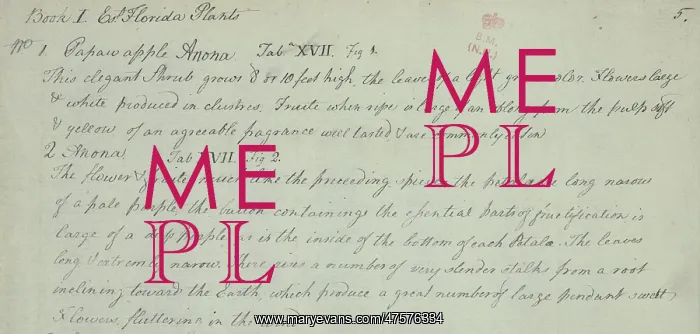 Book I. Est Florida Plants 5.
B.M.
(N.H.)
No 1 Papaw apple Anona Tab XVII. Fig 1.
This elegant Shrub grows 8 or 10 feet high, the leaves of a color. Flowers large
& white produced in clustres. Fruite when ripe is large of an oblong form the pulp soft
& yellow of an agreeable fragrance well tasted & are commonly eaten
2 Anona. Tab XVII. Fig 2.
The flower & fruite much like the preceeding species the petals are long narrow
of a pale purple, the button containings the essential parts of fructification is
large of a deep purple as is the inside of the bottom of each Petala. The leaves
long & extremly narrow. There rises a number of very slender stalks from a root
inclining toward the Earth, which produce a great number of large pendant sweet
Flowers, fluttering in the wind
ME
PL
ME
PL
www.maryevans.com/47576334